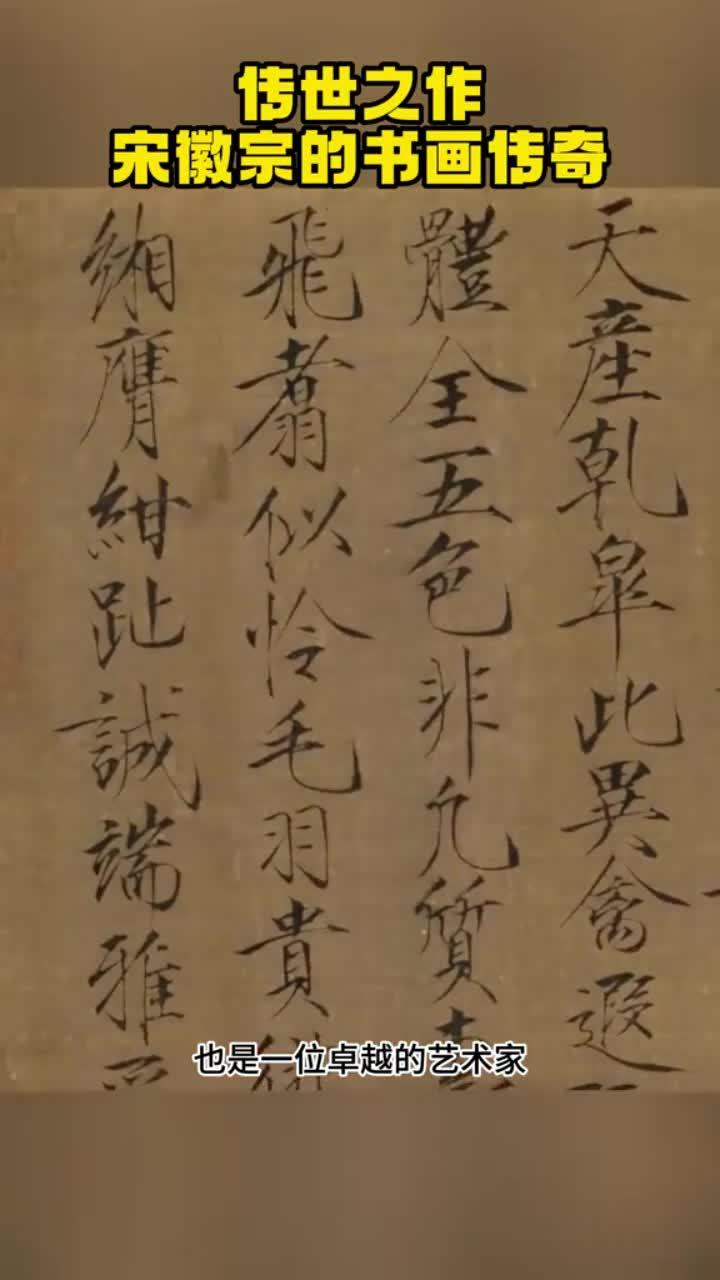 传世之作
宋徽宗的书画传奇
天產乾皐此異禽遐
體全五色非凡質
飛翥似怜毛羽貴
緗膺紺趾誠端雅
也是一位卓越的艺术家